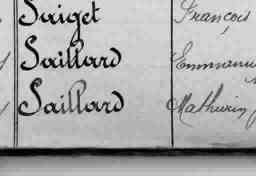 Saiget François
Saillard
Saillard Mathurin